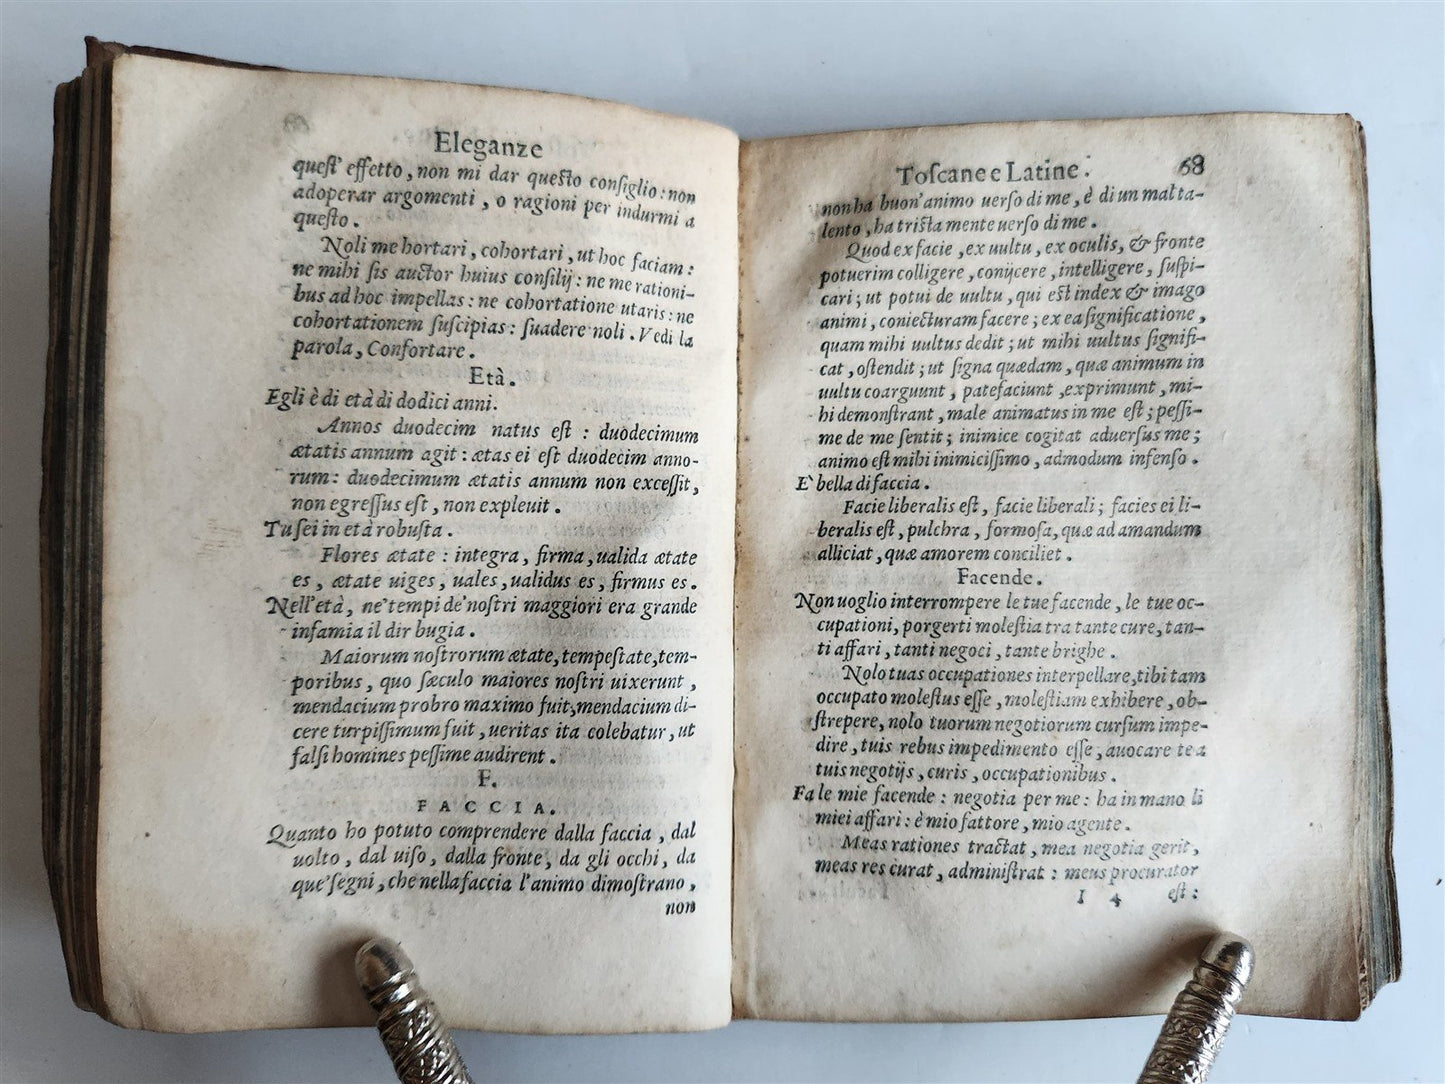 Eleganze
queſt' effetto, non mi dar queſto conſiglio: non
adoperar argomenti, o ragioni per indurmi a
queſto.
Noli me hortari, cohortari, ut hoc faciam:
ne mihi ſis auctor huius conſilij: ne me rationi-
bus ad hoc impellas: ne cohortatione utaris: ne
cohortationem ſuſcipias: ſuadere noli. Vedi la
parola, Confortare.
Età.
Egli è di età di dodici anni.
Annos duodecim natus eſt: duodecimum
ætatis annum agit: ætas ei eſt duodecim anno-
rum: duodecimum ætatis annum non exceſſit,
non egreſſus eſt, non expleuit.
Tu ſei in età robuſta.
Flores ætate: integra, firma, ualida ætate
es, ætate uiges, uales, ualidus es, firmus es.
Nell'età, ne' tempi de' noſtri maggiori era grande
infamia il dir bugia.
Maiorum noſtrorum ætate, tempeſtate, tem-
poribus, quo ſæculo maiores noſtri uixerunt,
mendacium probro maximo fuit, mendacium di-
cere turpiſſimum fuit, ueritas ita colebatur, ut
falſi homines peſſime audirent.
F.
FACCIA.
Quanto ho potuto comprendere dalla faccia, dal
uolto, dal uiſo, dalla fronte, da gli occhi, da
que' ſegni, che nella faccia l'animo dimoſtrano,
non
Toſcane e Latine. 68
non ha buon' animo uerſo di me, è di un mal ta-
lento, ha triſta mente uerſo di me.
Quod ex facie, ex uultu, ex oculis, & fronte
potuerim colligere, conijcere, intelligere, ſuſpi-
cari; ut potui de uultu, qui eſt index & imago
animi, coniecturam facere; ex ea ſignificatione,
quam mihi uultus dedit; ut mihi uultus ſignifi-
cat, oſtendit; ut ſigna quædam, quæ animum in
uultu coarguunt, patefaciunt, exprimunt, mi-
hi demonſtrant, male animatus in me eſt; peſſi-
me de me ſentit; inimice cogitat aduerſus me;
animo eſt mihi inimiciſſimo, admodum infenſo.
E' bella di faccia.
Facie liberalis eſt, facie liberali; facies ei li-
beralis eſt, pulchra, formoſa, quæ ad amandum
alliciat, quæ amorem conciliet.
Facende.
Non uoglio interrompere le tue facende, le tue oc-
cupationi, porgerti moleſtia tra tante cure, tan-
ti affari, tanti negoci, tante brighe.
Nolo tuas occupationes interpellare, tibi tam
occupato moleſtus eſſe, moleſtiam exhibere, ob-
ſtrepere, nolo tuorum negotiorum curſum impe-
dire, tuis rebus impedimento eſſe, auocare te a
tuis negotijs, curis, occupationibus.
Fa le mie facende: negotia per me: ha in mano li
miei affari: è mio fattore, mio agente.
Meas rationes tractat, mea negotia gerit,
meas res curat, adminiſtrat: meus procurator
I 4 eſt: